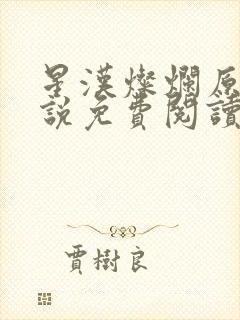 星漢燦爛原
說免費閱讀
賈樹良